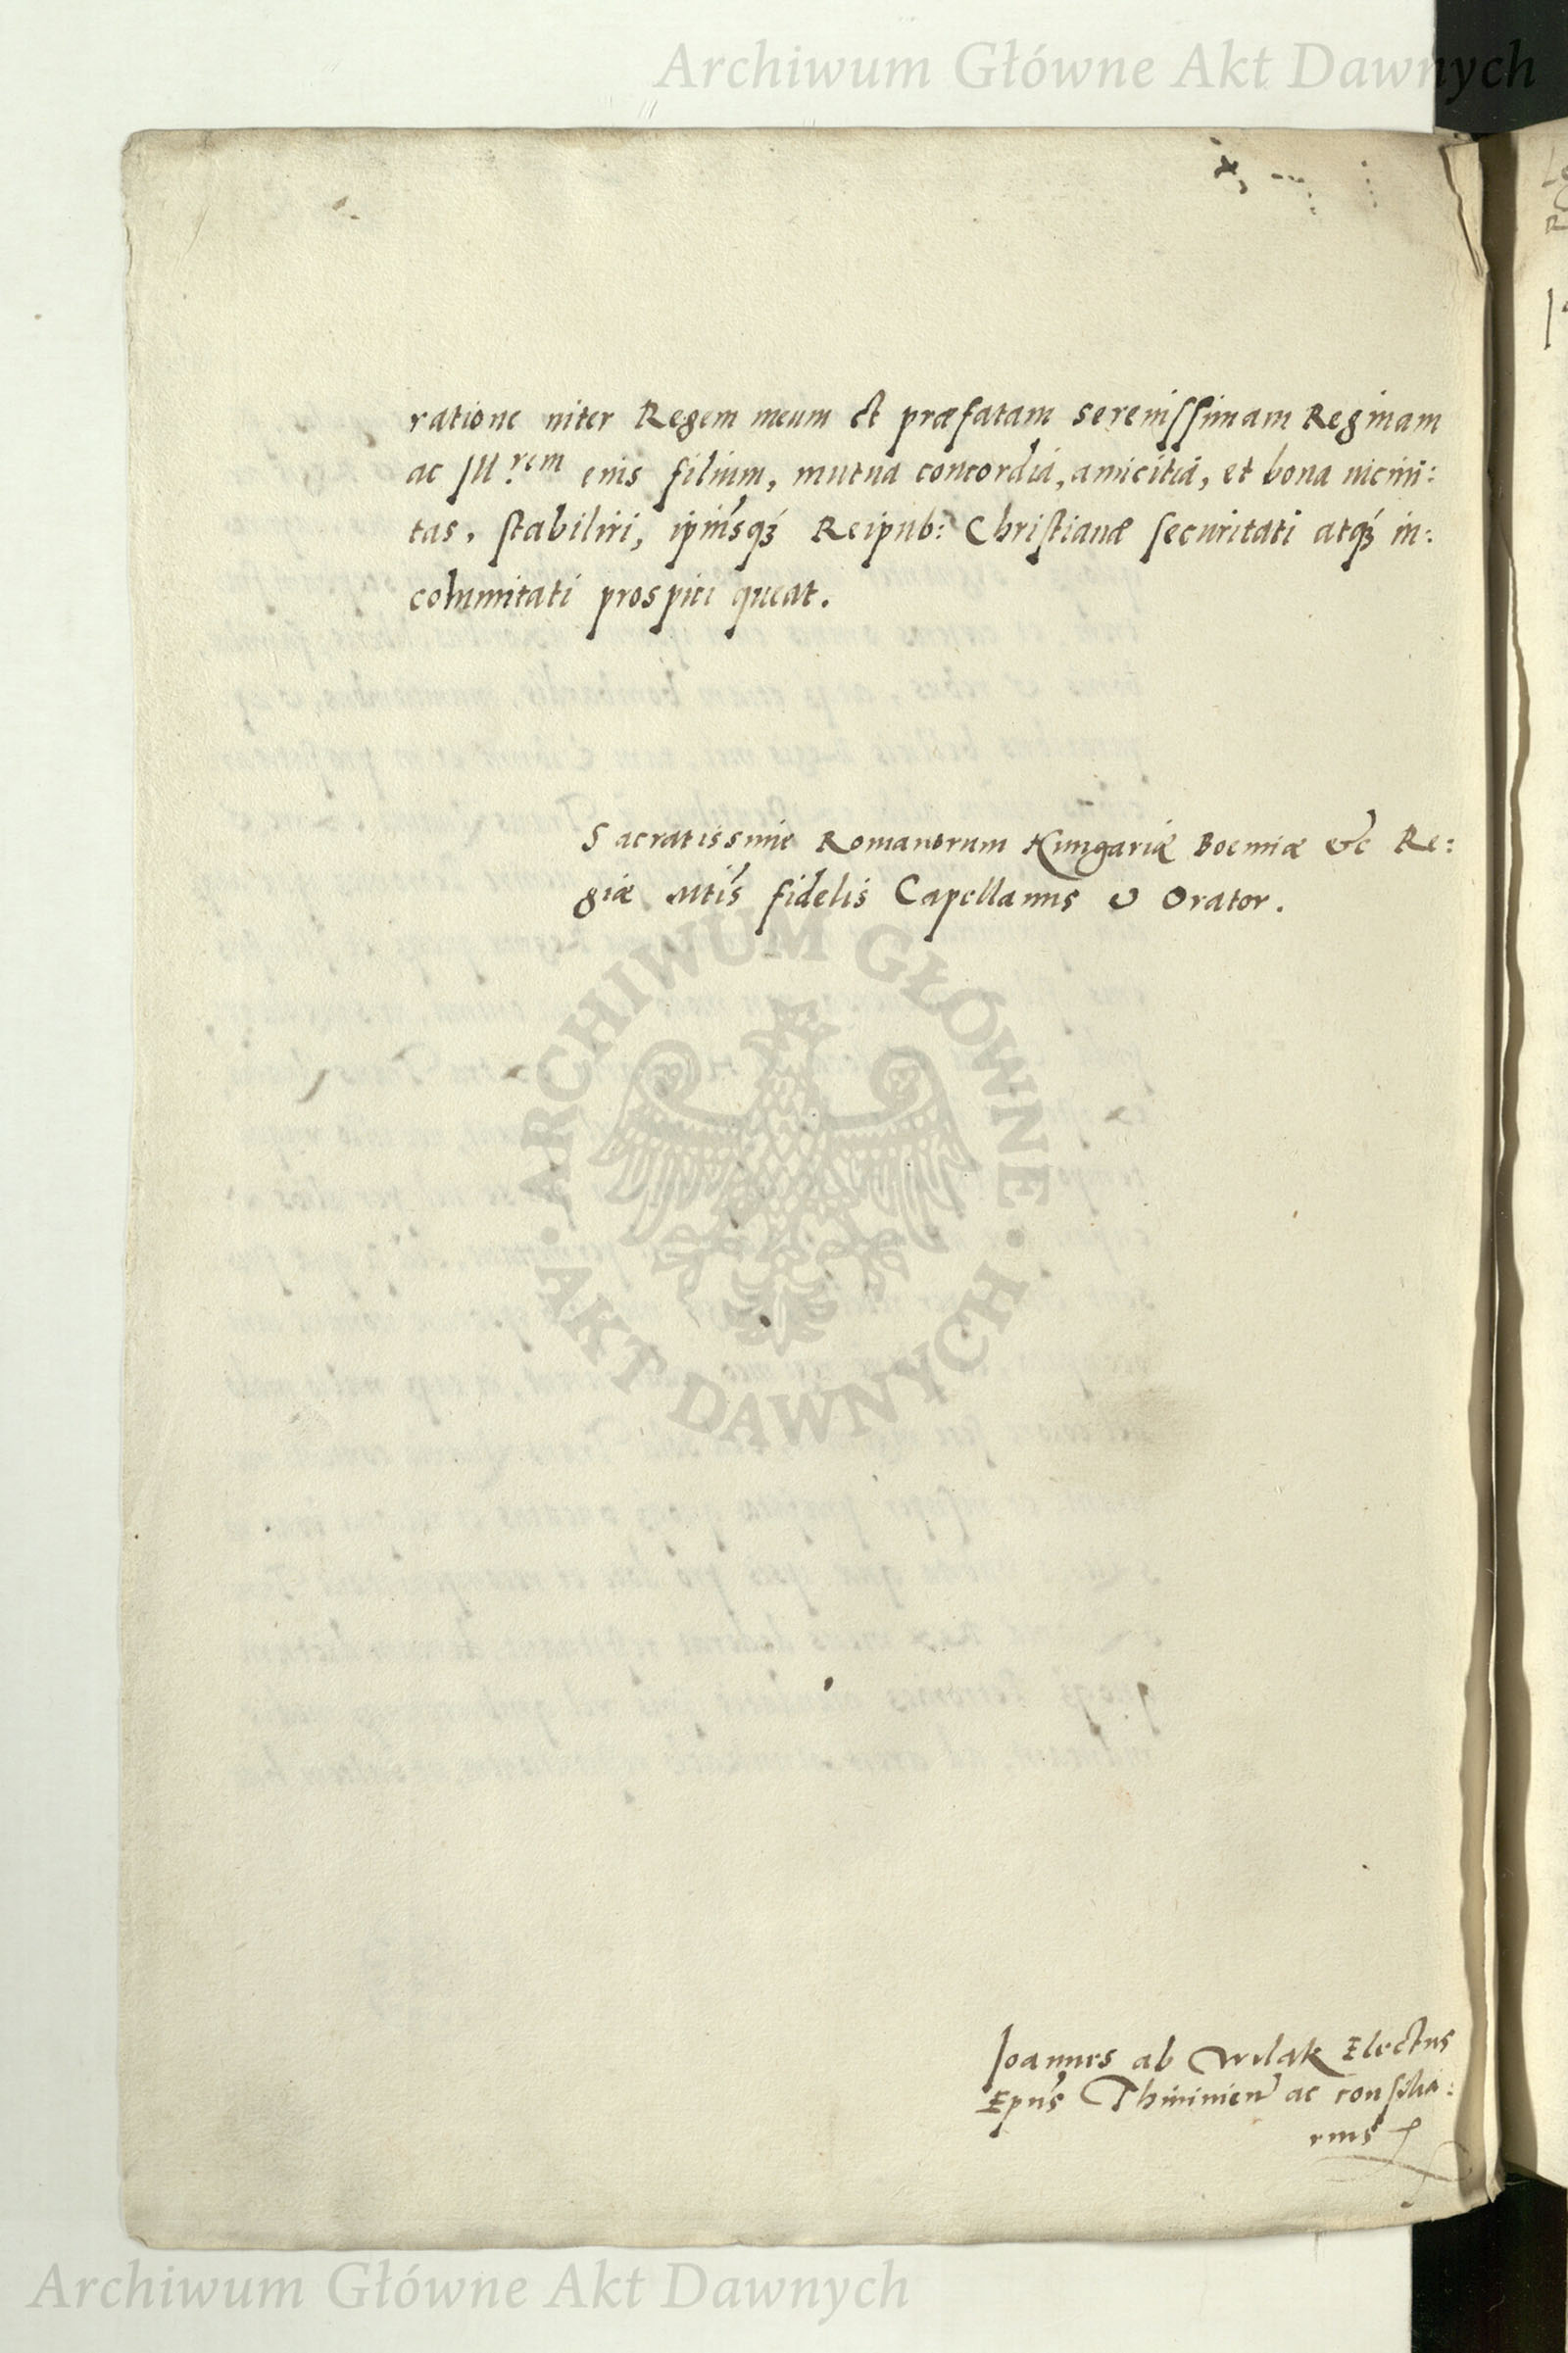 Archiwum Główne Akt Dawnych
ratione inter Regem meum et præfatam serenissimam Reginam
ac Ill.rem eius filium, mutua concordia, amicitia, et bona uicini:
tas, stabiliri, ipiusq3 Reipub: Christianæ securitati atq3 in:
columitati prospici queat.
Sacratissime Romanorum Hungariæ Boemiæ &c Re:
giæ Mtis fidelis Capellanus & Orator.
ARCHIWUM GŁÓWNE
AKT DAWNYCH
Ioannes ab Wylak Electus
Epus Thininien ac consilia:
rius
Archiwum Główne Akt Dawnych